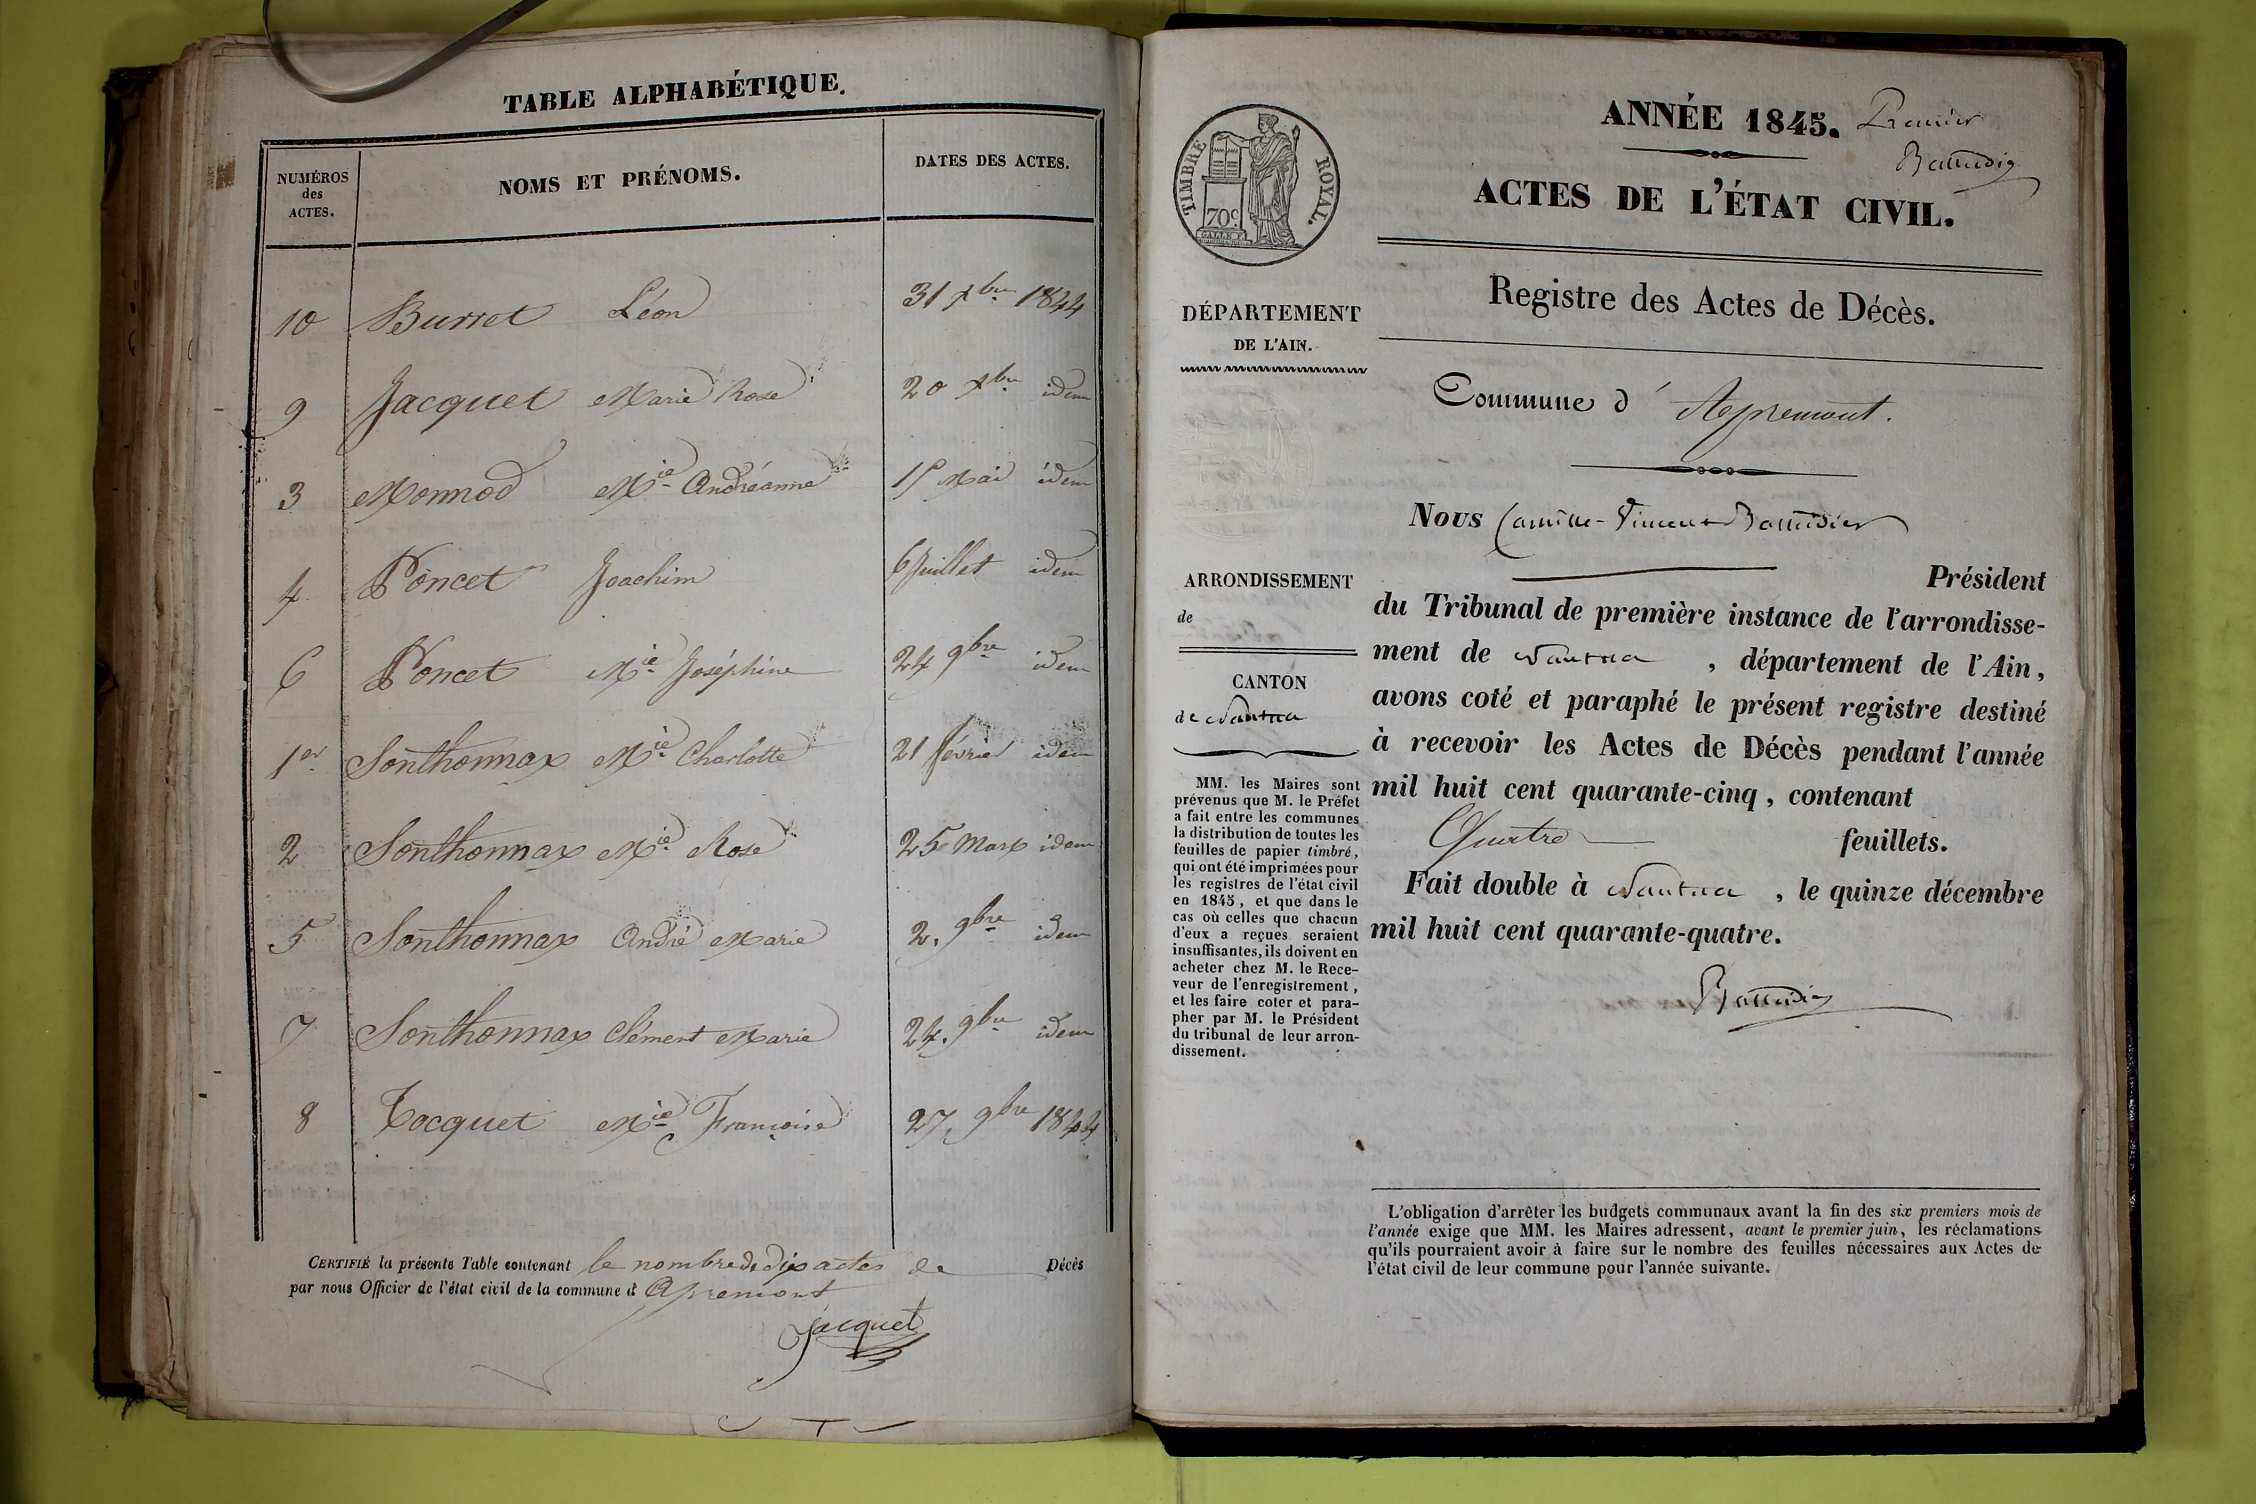 TABLE ALPHABÉTIQUE.
NUMÉROS
des
ACTES.
NOMS ET PRÉNOMS.
DATES DES ACTES.
10 Burret Léon 31 Xbre 1844
9 Jacquet Marie Rose 20 Xbre idem
3 Monnod Mie Andréanne 15 Mai idem
4 Poncet Joachim 6 Juillet idem
6 Poncet Mie Joséphine 24 9bre idem
1er Sonthonnax Mie Charlotte 21 février idem
2 Sonthonnax Mie Rose 25 Mars idem
5 Sonthonnax André Marie 2. 9bre idem
7 Sonthonnax Clément Marie 24. 9bre idem
8 Tocquet Mie Françoise 27. 9bre 1844
CERTIFIÉ la présente Table contenant le nombre de dix actes de Décès
par nous Officier de l'état civil de la commune d'Apremont
Jacquet
TIMBRE ROYAL.
70c.
ANNÉE 1845. Premier
ACTES DE L'ÉTAT CIVIL.
DÉPARTEMENT
DE L'AIN.
Registre des Actes de Décès.
Commune d'Apremont.
ARRONDISSEMENT
de
CANTON
de Nantua
MM. les Maires sont
prévenus que M. le Préfet
a fait entre les communes
la distribution de toutes les
feuilles de papier timbré,
qui ont été imprimées pour
les registres de l'état civil
en 1845, et que dans le
cas où celles que chacun
d'eux a reçues seraient
insuffisantes, ils doivent en
acheter chez M. le Rece-
veur de l'enregistrement,
et les faire coter et para-
pher par M. le Président
du tribunal de leur arron-
dissement.
Nous Camille-Vincent
Président
du Tribunal de première instance de l'arrondisse-
ment de Nantua, département de l'Ain,
avons coté et paraphé le présent registre destiné
à recevoir les Actes de Décès pendant l'année
mil huit cent quarante-cinq, contenant
Quatre feuillets.
Fait double à Nantua, le quinze décembre
mil huit cent quarante-quatre.
L'obligation d'arrêter les budgets communaux avant la fin des six premiers mois de
l'année exige que MM. les Maires adressent, avant le premier juin, les réclamations
qu'ils pourraient avoir à faire sur le nombre des feuilles nécessaires aux Actes de
l'état civil de leur commune pour l'année suivante.